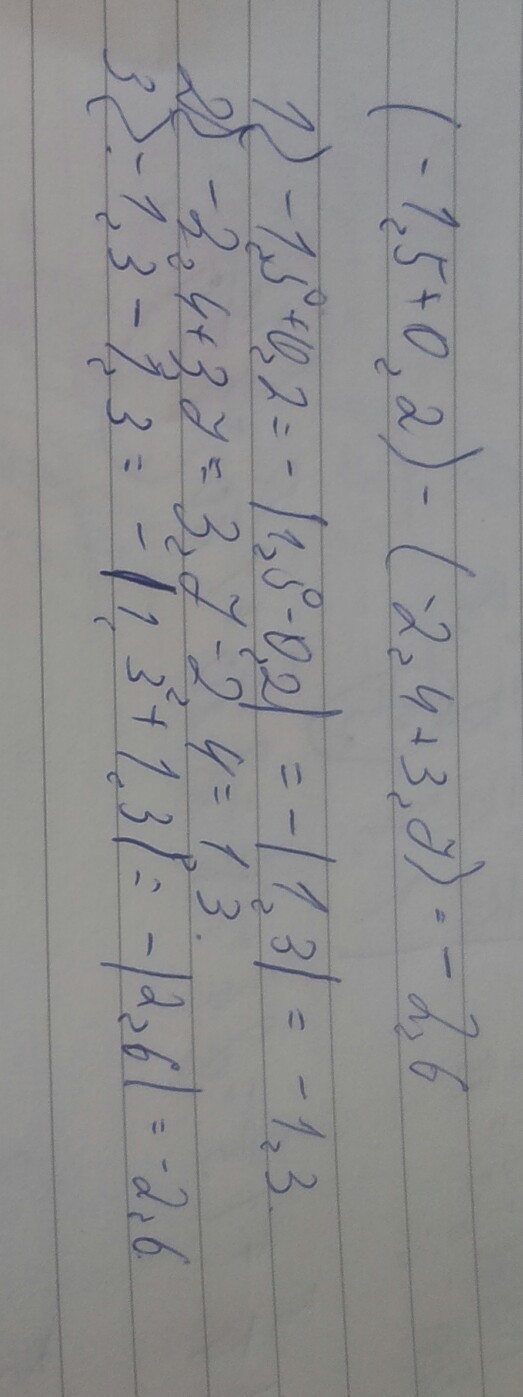 (-1,5+0,2)-(-2,4+3,7)=-2,6
1) -1,5+0,2=-|1,5-0,2|=-|1,3|=-1,3.
2) -2,4+3,7=3,7-2,4=1,3.
3) -1,3-1,3=-|1,3+1,3|=-|2,6|=-2,6